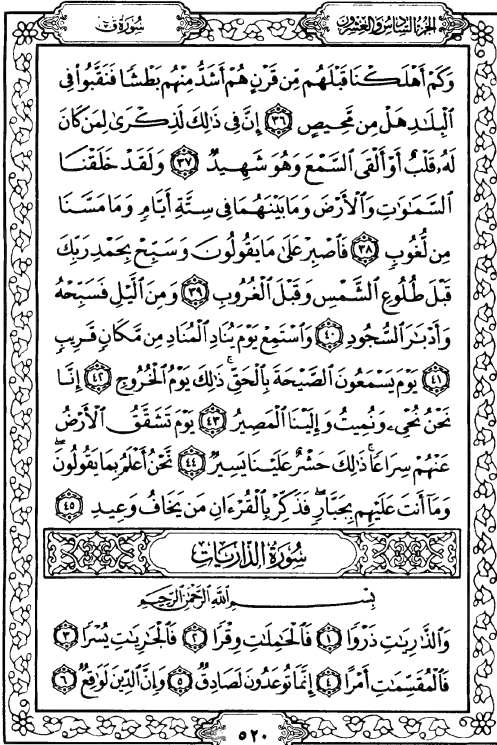 الجزء السادس والعشرون
سورة ق
وَكَمْ أَهْلَكْنَا قَبْلَهُم مِّن قَرْنٍ هُمْ أَشَدُّ مِنْهُم بَطْشًا فَنَقَّبُوا۟ فِى
ٱلْبِلَـٰدِ هَلْ مِن مَّحِيصٍ ٣٦ إِنَّ فِى ذَٰلِكَ لَذِكْرَىٰ لِمَن كَانَ
لَهُۥ قَلْبٌ أَوْ أَلْقَى ٱلسَّمْعَ وَهُوَ شَهِيدٌ ٣٧ وَلَقَدْ خَلَقْنَا
ٱلسَّمَـٰوَٰتِ وَٱلْأَرْضَ وَمَا بَيْنَهُمَا فِى سِتَّةِ أَيَّامٍ وَمَا مَسَّنَا
مِن لُّغُوبٍ ٣٨ فَٱصْبِرْ عَلَىٰ مَا يَقُولُونَ وَسَبِّحْ بِحَمْدِ رَبِّكَ
قَبْلَ طُلُوعِ ٱلشَّمْسِ وَقَبْلَ ٱلْغُرُوبِ ٣٩ وَمِنَ ٱلَّيْلِ فَسَبِّحْهُ
وَأَدْبَـٰرَ ٱلسُّجُودِ ٤٠ وَٱسْتَمِعْ يَوْمَ يُنَادِ ٱلْمُنَادِ مِن مَّكَانٍ قَرِيبٍ
٤١ يَوْمَ يَسْمَعُونَ ٱلصَّيْحَةَ بِٱلْحَقِّ ۚ ذَٰلِكَ يَوْمُ ٱلْخُرُوجِ ٤٢ إِنَّا
نَحْنُ نُحْىِۦ وَنُمِيتُ وَإِلَيْنَا ٱلْمَصِيرُ ٤٣ يَوْمَ تَشَقَّقُ ٱلْأَرْضُ
عَنْهُمْ سِرَاعًا ۚ ذَٰلِكَ حَشْرٌ عَلَيْنَا يَسِيرٌ ٤٤ نَّحْنُ أَعْلَمُ بِمَا يَقُولُونَ ۖ
وَمَا أَنتَ عَلَيْهِم بِجَبَّارٍ ۖ فَذَكِّرْ بِٱلْقُرْءَانِ مَن يَخَافُ وَعِيدِ ٤٥
سورة الذاريات
بِسْمِ ٱللَّهِ ٱلرَّحْمَـٰنِ ٱلرَّحِيمِ
وَٱلذَّٰرِيَـٰتِ ذَرْوًا ١ فَٱلْحَـٰمِلَـٰتِ وِقْرًا ٢ فَٱلْجَـٰرِيَـٰتِ يُسْرًا ٣
فَٱلْمُقَسِّمَـٰتِ أَمْرًا ٤ إِنَّمَا تُوعَدُونَ لَصَادِقٌ ٥ وَإِنَّ ٱلدِّينَ لَوَٰقِعٌ ٦
٥٢٠